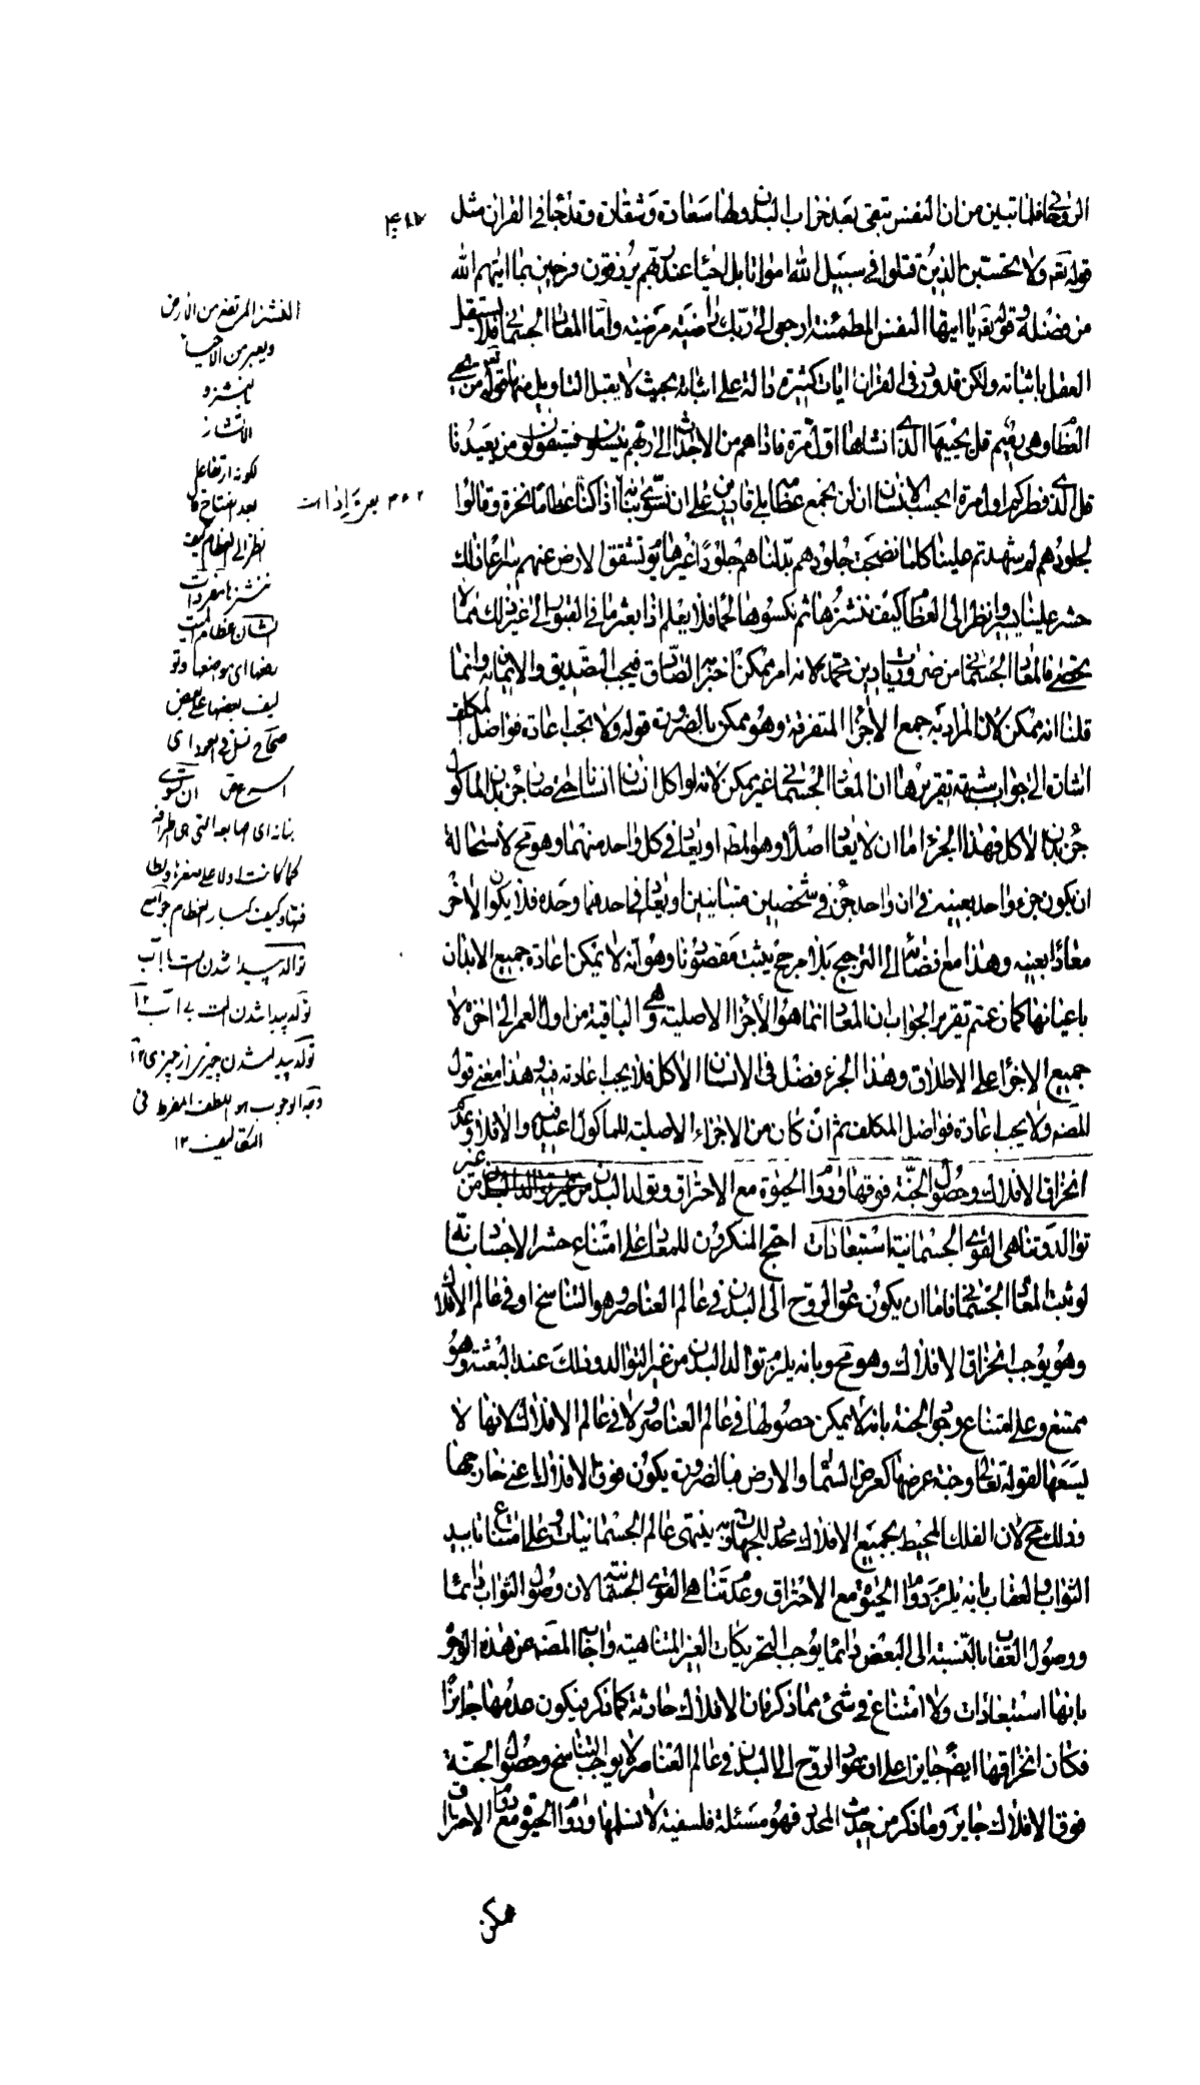 الروحاني فلما تبين من ان النفس تبقى بعد خراب البدن ولها سعادة وشقاوة وقد جاء في القران مثل
قوله تعه ولا تحسبن الذين قتلوا في سبيل الله امواتا بل احياء عند ربهم يرزقون فرحين بما اتيهم الله
من فضله وقوله تعه يا ايتها النفس المطمئنة ارجعي الى ربك راضية مرضية واما المعاد الجسماني فلا يستقل
العقل باثباته ولكن قد ورد في القران ايات كثيرة دالة على اثباته بحيث لا يقبل التاويل منها قوله تعه من يحيي
العظام وهي رميم قل يحييها الذي انشاها اول مرة فاذا هم من الاجداث الى ربهم ينسلون فسيقولون من يعيدنا
قل الذي فطركم اول مرة ايحسب الانسان ان لن نجمع عظامه بلى قادرين على ان نسوي بنانه ااذا كنا عظاما نخرة وقالوا
لجلودهم لم شهدتم علينا كلما نضجت جلودهم بدلناهم جلودا غيرها يوم تشقق الارض عنهم سراعا ذلك
حشر علينا يسير وانظر الى العظام كيف ننشزها ثم نكسوها لحما افلا يعلم اذا بعثر ما في القبور الى غير ذلك مما لا
يحصى فالمعاد الجسماني من ضروريات دين محمد لانه امر ممكن اخبر به الصادق فيجب التصديق والايمان به وانما
قلنا انه ممكن لان المراد به جمع الاجزاء المتفرقة وهو ممكن بالضرورة قوله ولا يجب اعادة فواضل المكلف
اشارة الى جواب شبهة تقريرها ان المعاد الجسماني غير ممكن لانه لو اكل انسان انسانا حتى صار جزء بدن الماكول
جزء بدن الاكل فهذا الجزء اما ان لا يعاد اصلا وهو المط او يعاد في كل واحد منهما وهو مح لاستحالة
ان يكون جزء واحد بعينه في ان واحد جزء في شخصين متباينين او يعاد في احدهما وحده فلا يكون الاخر
معادا بعينه وهذا مع افضائه الى الترجيح بلا مرجح يثبت مقصودنا وهو انه لا يمكن اعادة جميع الابدان
باعيانها كما زعمتم تقرير الجواب ان المعاد انما هو الاجزاء الاصلية وهي الباقية من اول العمر الى اخره لا
جميع الاجزاء على الاطلاق وهذا الجزء فضل في الانسان الاكل فلا يجب اعادته فيه وهذا معنى قول
المصنه ولا يجب اعادة فواضل المكلف ثم ان كان من الاجزاء الاصلية للماكول اعيد فيه والا فلا وعدم
انخراق الافلاك وحصول الجنة فوقها ودوام الحيوة مع الاحتراق وتولد البدن من غير
توالد وتناهي القوى الجسمانية استبعادات احتج المنكرون للمعاد على امتناع حشر الاجساد بانه
لو ثبت المعاد الجسماني فاما ان يكون عود الروح الى البدن في عالم العناصر وهو التناسخ او في عالم الافلاك
وهو يوجب انخراق الافلاك وهو مح وبانه يلزم توالد البدن من غير التوالد وذلك عند البعثة وهو
ممتنع وعلى امتناع وجود الجنة بانه لا يمكن حصولها في عالم العناصر ولا في عالم الافلاك لانها لا
يسعها لقوله تعالى وجنة عرضها كعرض السماء والارض فبالضرورة يكون فوق الافلاك اعني خارجها
وذلك مح لان الفلك المحيط بجميع الافلاك محدد للجهات وبه ينتهي عالم الجسمانيات وعلى امتناع تابيد
الثواب والعقاب بانه يلزم دوام الحيوة مع الاحتراق وعدم تناهي القوى الجسمانية لان وصول الثواب دائما
ووصول العقاب بالنسبة الى البعض دائما يوجب التحريكات الغير المتناهية واجاب المصنه عن هذه الوجوه
بانها استبعادات ولا امتناع في شيء مما ذكر فان الافلاك حادثة كما ذكر فيكون عدمها جايزا
فكان انخراقها ايضا جايزا على ان عود الروح الى البدن في عالم العناصر لا يوجب التناسخ وحصول الجنة
فوق الافلاك جايز وما ذكر من حديث المحدد فهو مسئلة فلسفية لا نسلمها ودوام الحيوة مع دوام الاحتراق
ممكن
النشز المرتفع من الارض
ويعبر من الاحياء
بالنشز و
الانشاز
لكونه ارتفاعا
بعد اتضاع ق
نظر الى العظام كيف
ننشزها مفردات
بعضها اى موضعها وتو
ليف بعضها على بعض
صحاح نسل في العدو اى
اسرع ق ان نسوى
بنانه اى اصابعه التى هى اطرافه
كما كانت اولا على صغرها ولطا
فتها وكيف كبار العظام جوامع
تولد پيدا شدن چيزى از چيزى ١٢
وجه الوجوب هو اللطف المقرب فى
التكاليف ١٢